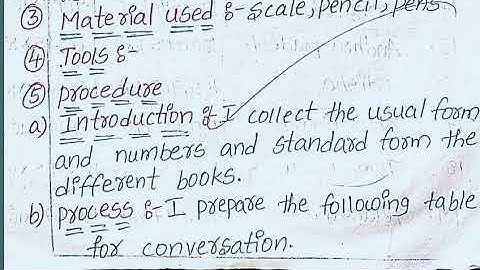 ③ Material used :- scale, pencil, pens
④ Tools :-
⑤ procedure
a) Introduction :- I collect the usual form
and numbers and standard form the
different books.
b) process :- I prepare the following table
for conversation.